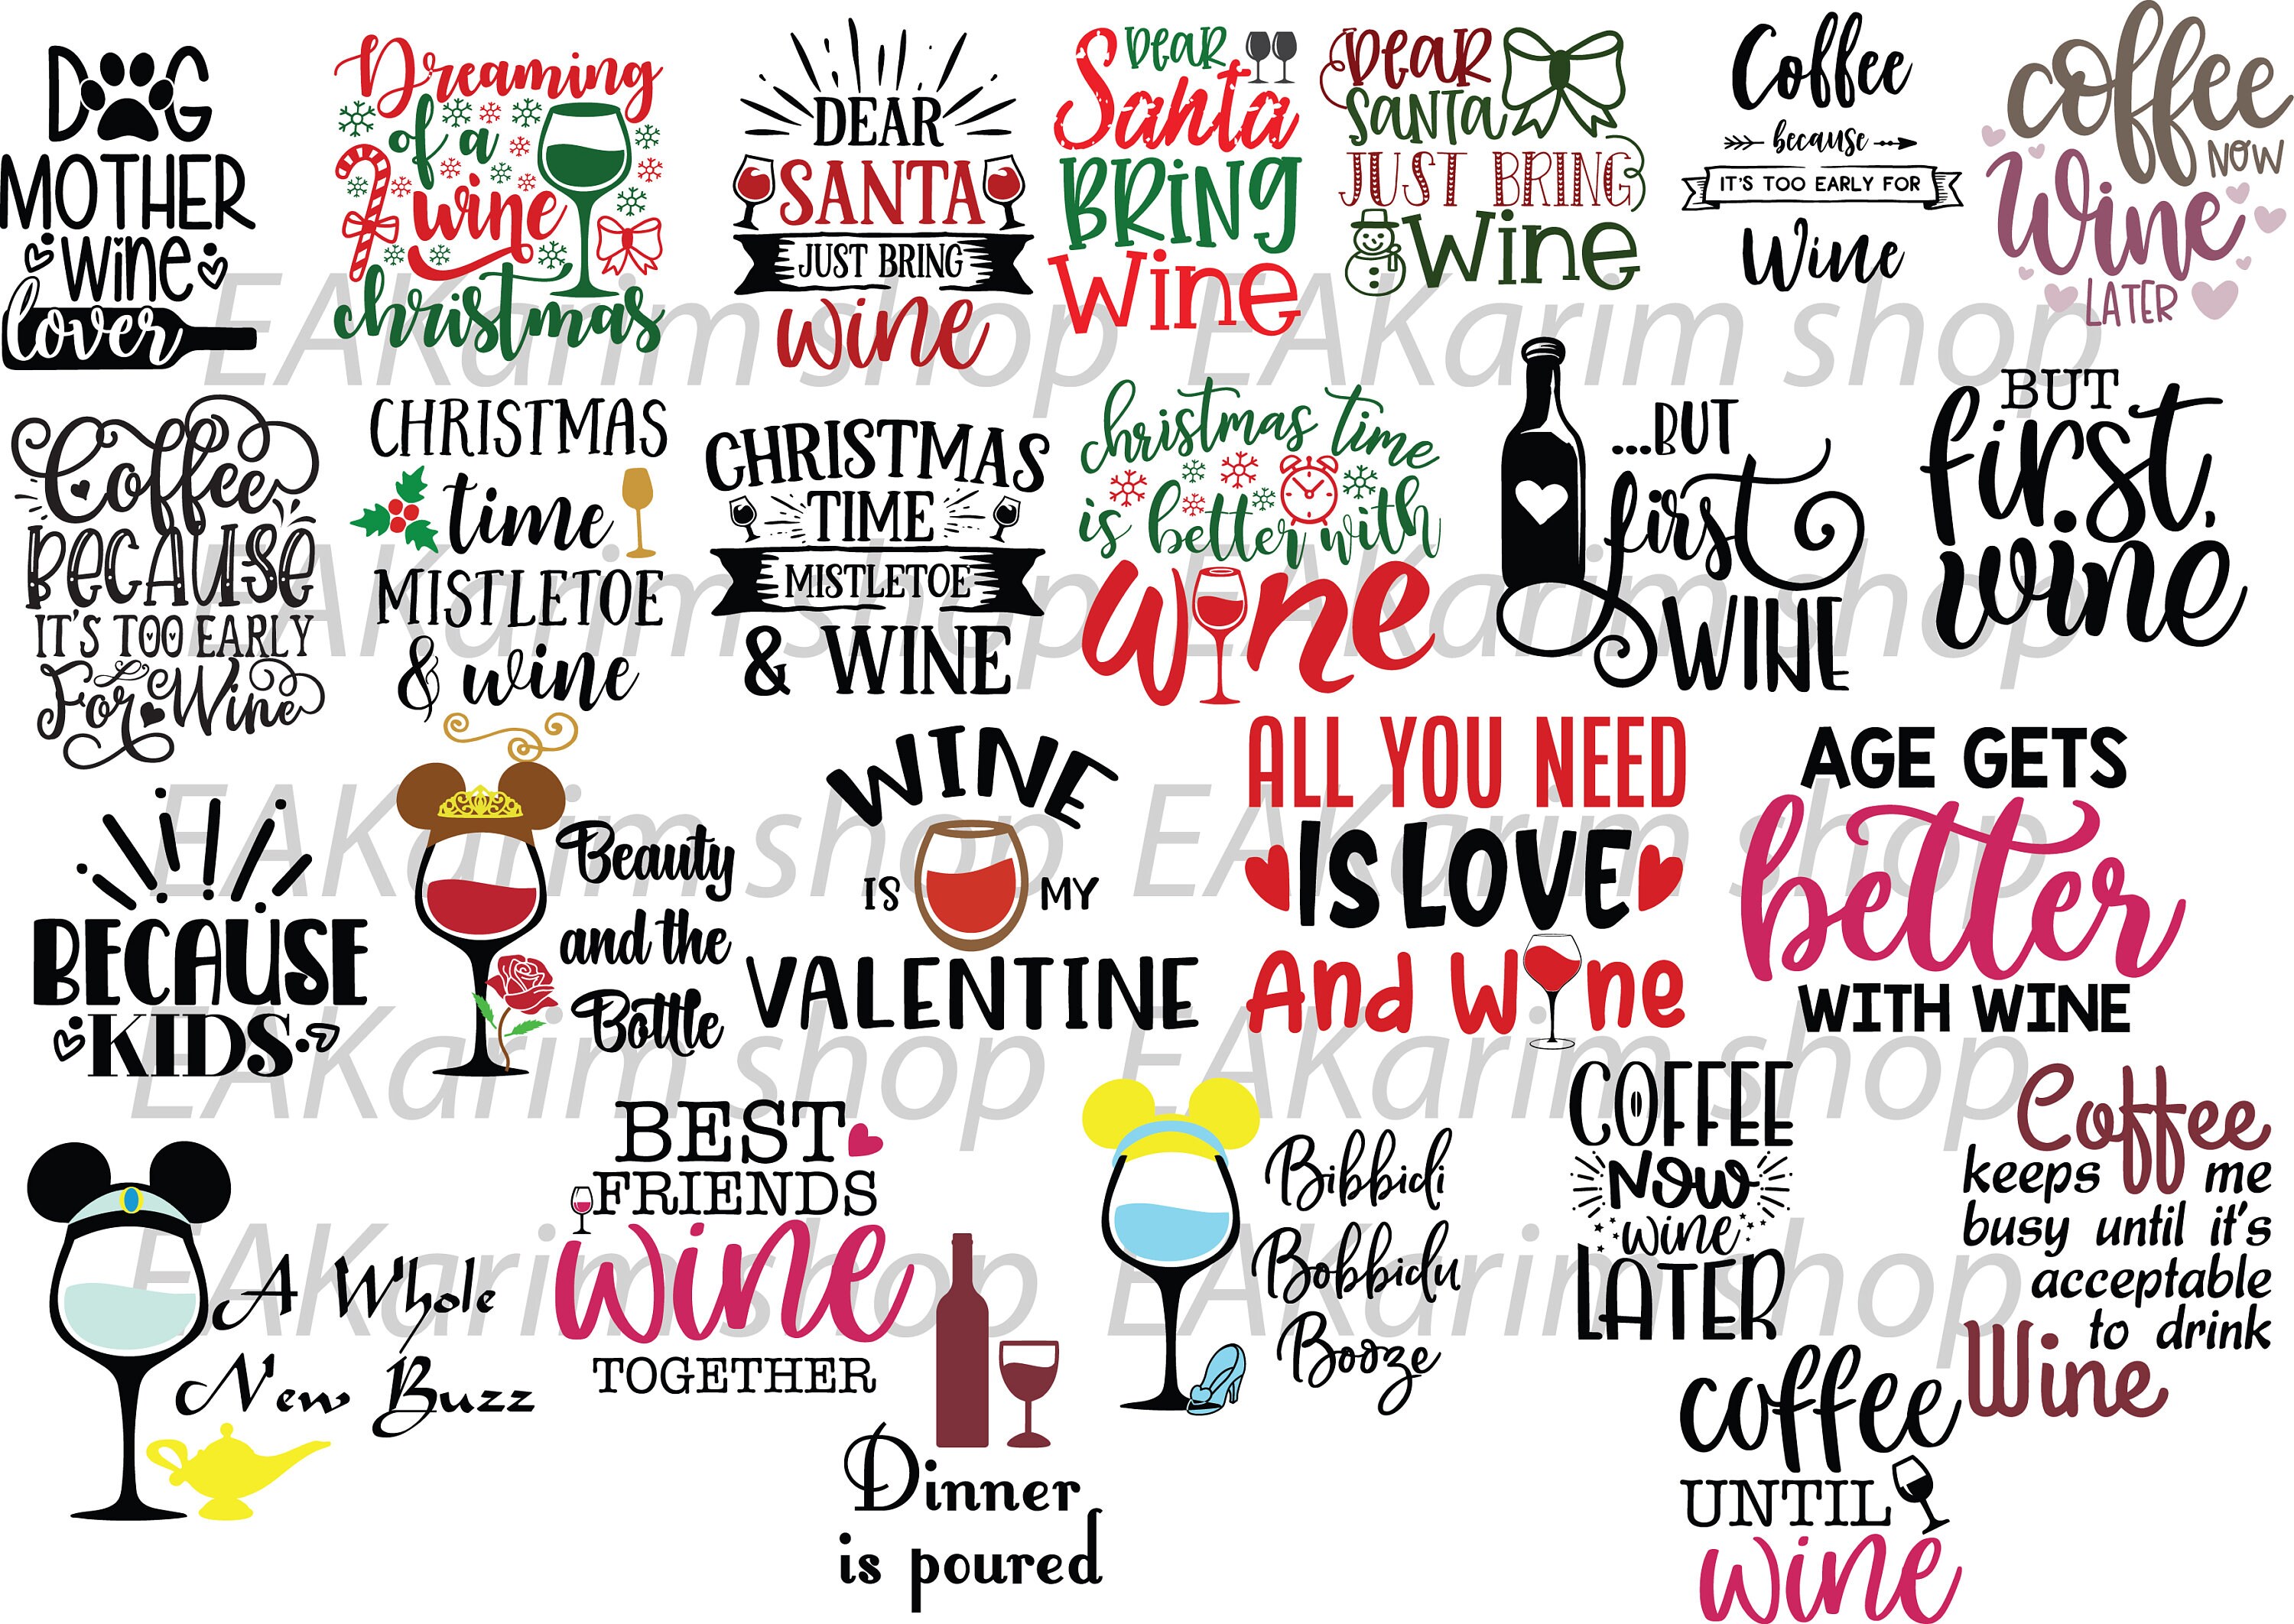 DOG
MOTHER
wine
lover
Dreaming
of a
wine
christmas
DEAR
SANTA
JUST BRING
wine
DEAR
Santa
BRING
Wine
DEAR
SANTA
JUST BRING
Wine
Coffee
because
IT'S TOO EARLY FOR
Wine
coffee
NOW
Wine
LATER
Coffee
BECAUSE
IT'S TOO EARLY
For Wine
CHRISTMAS
time
MISTLETOE
& wine
CHRISTMAS
TIME
MISTLETOE
& WINE
christmas time
is better with
wine
...BUT
first
WINE
BUT
first,
wine
BECAUSE
KIDS
Beauty
and the
Bottle
WINE
IS MY
VALENTINE
ALL YOU NEED
IS LOVE
And Wine
AGE GETS
better
WITH WINE
A Whole
New Buzz
BEST
FRIENDS
wine
TOGETHER
Dinner
is poured
Bibbidi
Bobbidu
Booze
COFFEE
NOW
wine
LATER
Coffee
keeps me
busy until it's
acceptable
to drink
Wine
coffee
UNTIL
wine
EAKarim shop EAKarim shop
EAKarim shop EAKarim shop
EAKarim shop EAKarim shop
EAKarim shop EAKarim shop
EAKarim shop EAKarim shop